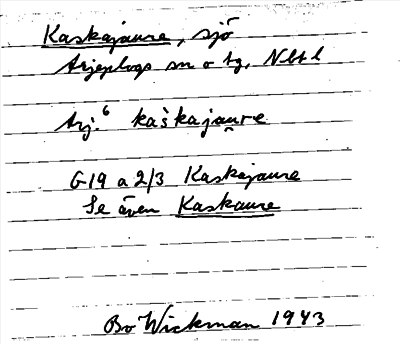 Kaskajaure, sjö
Arjeplogs sn o tg, Nbt l
Arj.⁶ kaškajau̯re
G19 a 2/3 Kaskajaure
Se även Kaskaure
Bo Wickman 1943